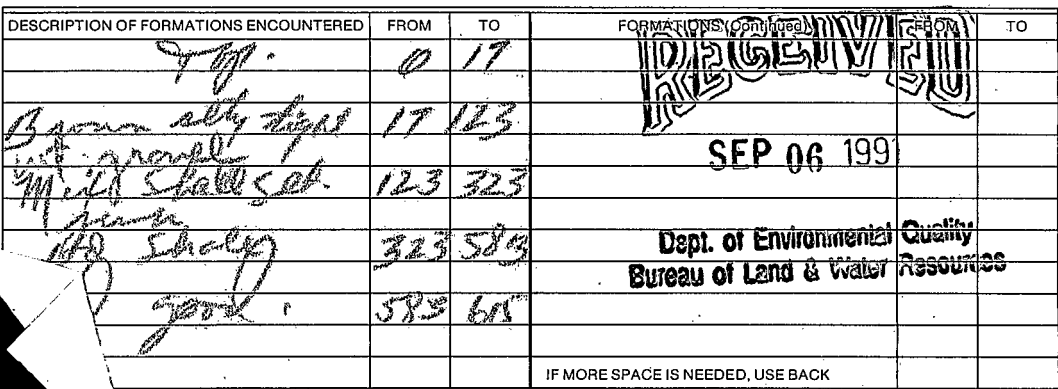 DESCRIPTION OF FORMATIONS ENCOUNTERED FROM TO
Top. 0 17
Brown slty 17 123
gravel
Shall 123 323
Shaley 323 583
good. 583 615
FORMATIONS (Continued) FROM TO
RECEIVED
SEP 06 1991
Dept. of Environmental Quality
Bureau of Land & Water Resources
IF MORE SPACE IS NEEDED, USE BACK